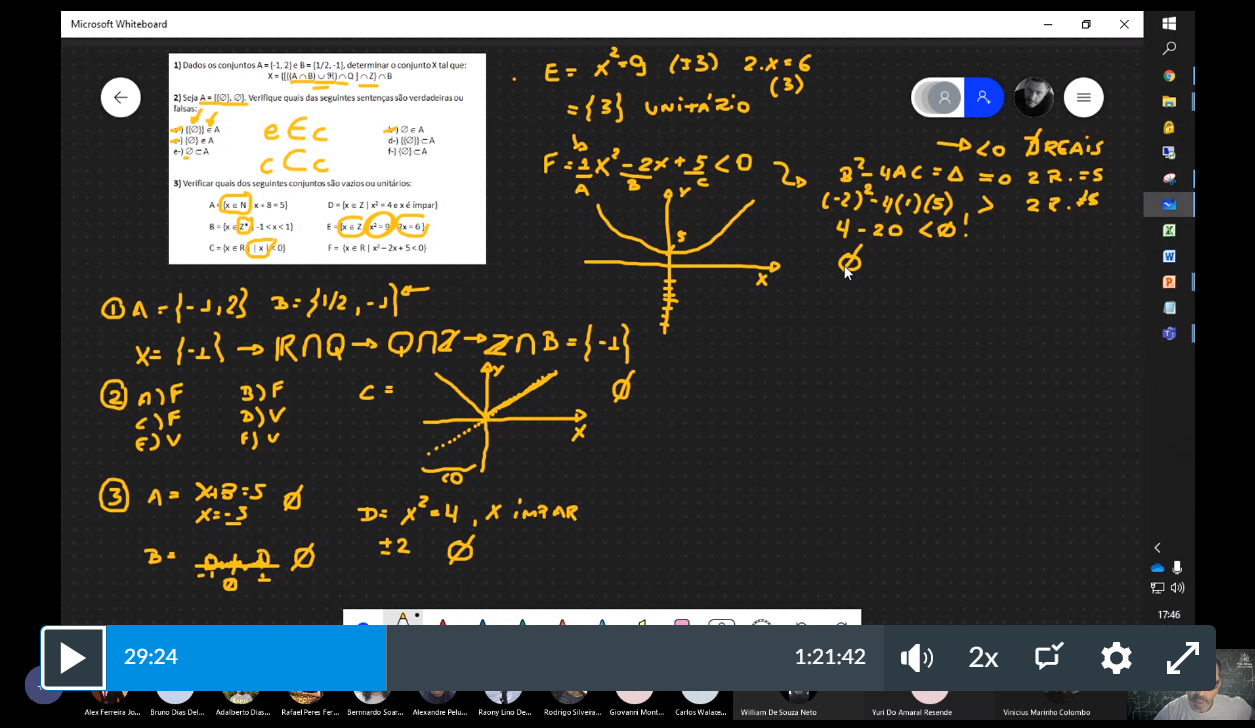 Microsoft Whiteboard
1) Dados os conjuntos A = {-1, 2} e B = {1/2, -1}, determinar o conjunto X tal que:
X = {[((A ∩ B) ∪ ℜ) ∩ Q ] ∩ Z} ∩ B
2) Seja A = {{∅}, ∅}. Verifique quais das seguintes sentenças são verdadeiras ou
falsas:
) {{∅}} ∈ A
) ∅ ∈ A
) {∅} e A
d-) {{∅}} ⊂ A
e-) ∅ ⊂ A
f-) {∅} ⊂ A
e ∈ c
c ⊂ c
3) Verificar quais dos seguintes conjuntos são vazios ou unitários:
A = {x ∈ N x + 8 = 5}
D = {x ∈ Z | x² = 4 e x é ímpar}
B = {x ∈ Z* -1 < x < 1}
E = {x ∈ Z x² = 9 2x = 6 }
C = {x ∈ R | x | < 0}
F = {x ∈ R | x² – 2x + 5 < 0}
E = x² = 9 (±3) 2.x = 6
(3)
= {3} UNITÁZIO
F = 1x² - 2x + 5 < 0
A B C
Y
5
X
→ <0 ∅ REAIS
B² - 4AC = Δ = 0 2 R. = S
(-2)² - 4(1)(5) > 2 R. ≠S
4 - 20 < ∅!
∅
① A = {-1, 2} B = {1/2, -1} ←
X = {-1} → ℝ∩Q → Q∩Z → Z∩B = {-1}
② A) F B) F
C) F D) V
E) V F) V
C =
Y
X
<0
∅
③ A = X+8=5 ∅
X = -3
B = ∅
-1 0 1
D = x² = 4 , X ímPAR
±2 ∅
17:46
29:24
1:21:42
2x
Alex Ferreira Jo...
Bruno Dias Del...
Adalberto Dias...
Rafael Peres Fer...
Bernnardo Soar...
Alexandre Pelu...
Raony Lino De...
Rodrigo Silveira...
Giovanni Mont...
Carlos Walace...
William De Souza Neto
Yuri Do Amaral Resende
Vinicius Marinho Colombo